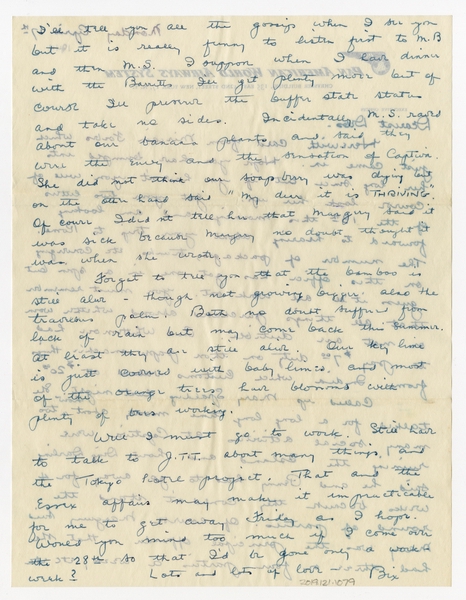 I'll tell you all the gossip when I see you
but it is really funny to listen first to M.B
and then M.S. I suppose when I have dinner
with the Barritts I'll get plenty more but of
course I'll preserve the buffer state status
and take no sides. Incidentally M.S. raved
about our banana plants and said they
were the envy and the sensation of Captiva.
She did not think our soap berry was dying but
on the other hand said "My dear it is THRIVING".
Of course I didn't tell her that Margery said it
was sick because Margery no doubt thought it
was when she wrote.
Forgot to tell you that the bamboo is
still alive - though not growing bigger. also the
travelers palm. Both no doubt suffered from
lack of rain but may come back this summer.
At least they are still alive. Our key lime
is just covered with baby limes. and most
of the orange trees have blossoms with
plenty of bees working.
Well I must go to work. Still have
to talk to J.T.T. about many things, and
the Tokyo hotel project. That and the
Essex affairs may make it impracticable
for me to get away Friday as I hope.
Would you mind too much if I came over
the 28th so that I'd be gone only a week
Lots and lots of love - Bix
2019.121.1079